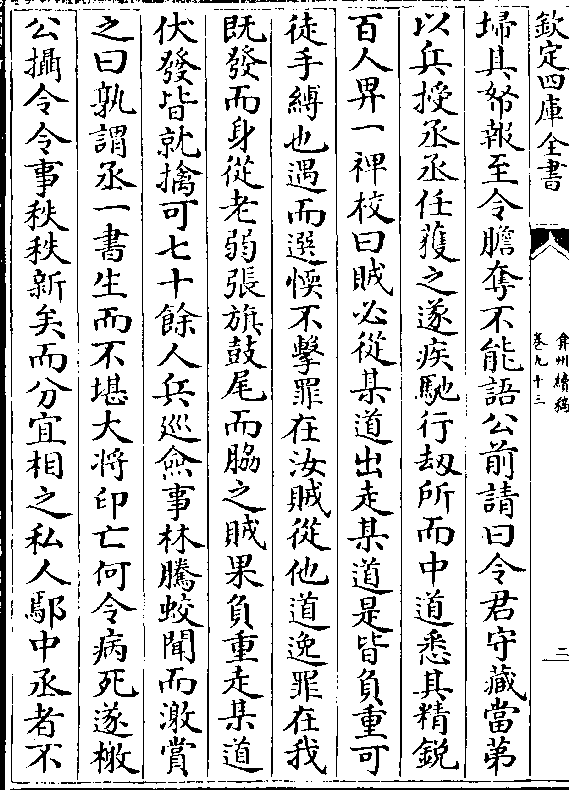 欽定四庫全書
弇州續稿
卷九十三
二
埽其帑報至令膽奪不能語公前請曰令君守藏當弟
以兵授丞丞任蒦之遂疾馳行刼所而中道悉其精銳
百人畀一裨校曰賊必從某道出走某道是皆負重可
徒手縛也遇而選愞不擊罪在汝賊從他道逸罪在我
既發而身從老弱張旗鼓尾而脇之賊果負重走某道
伏發皆就擒可七十餘人兵巡僉事林騰蛟聞而激賞
之曰孰謂丞一書生而不堪大將印亡何令病死遂檄
公攝令令事秩秩新矣而分宜相之私人鄢中丞者不